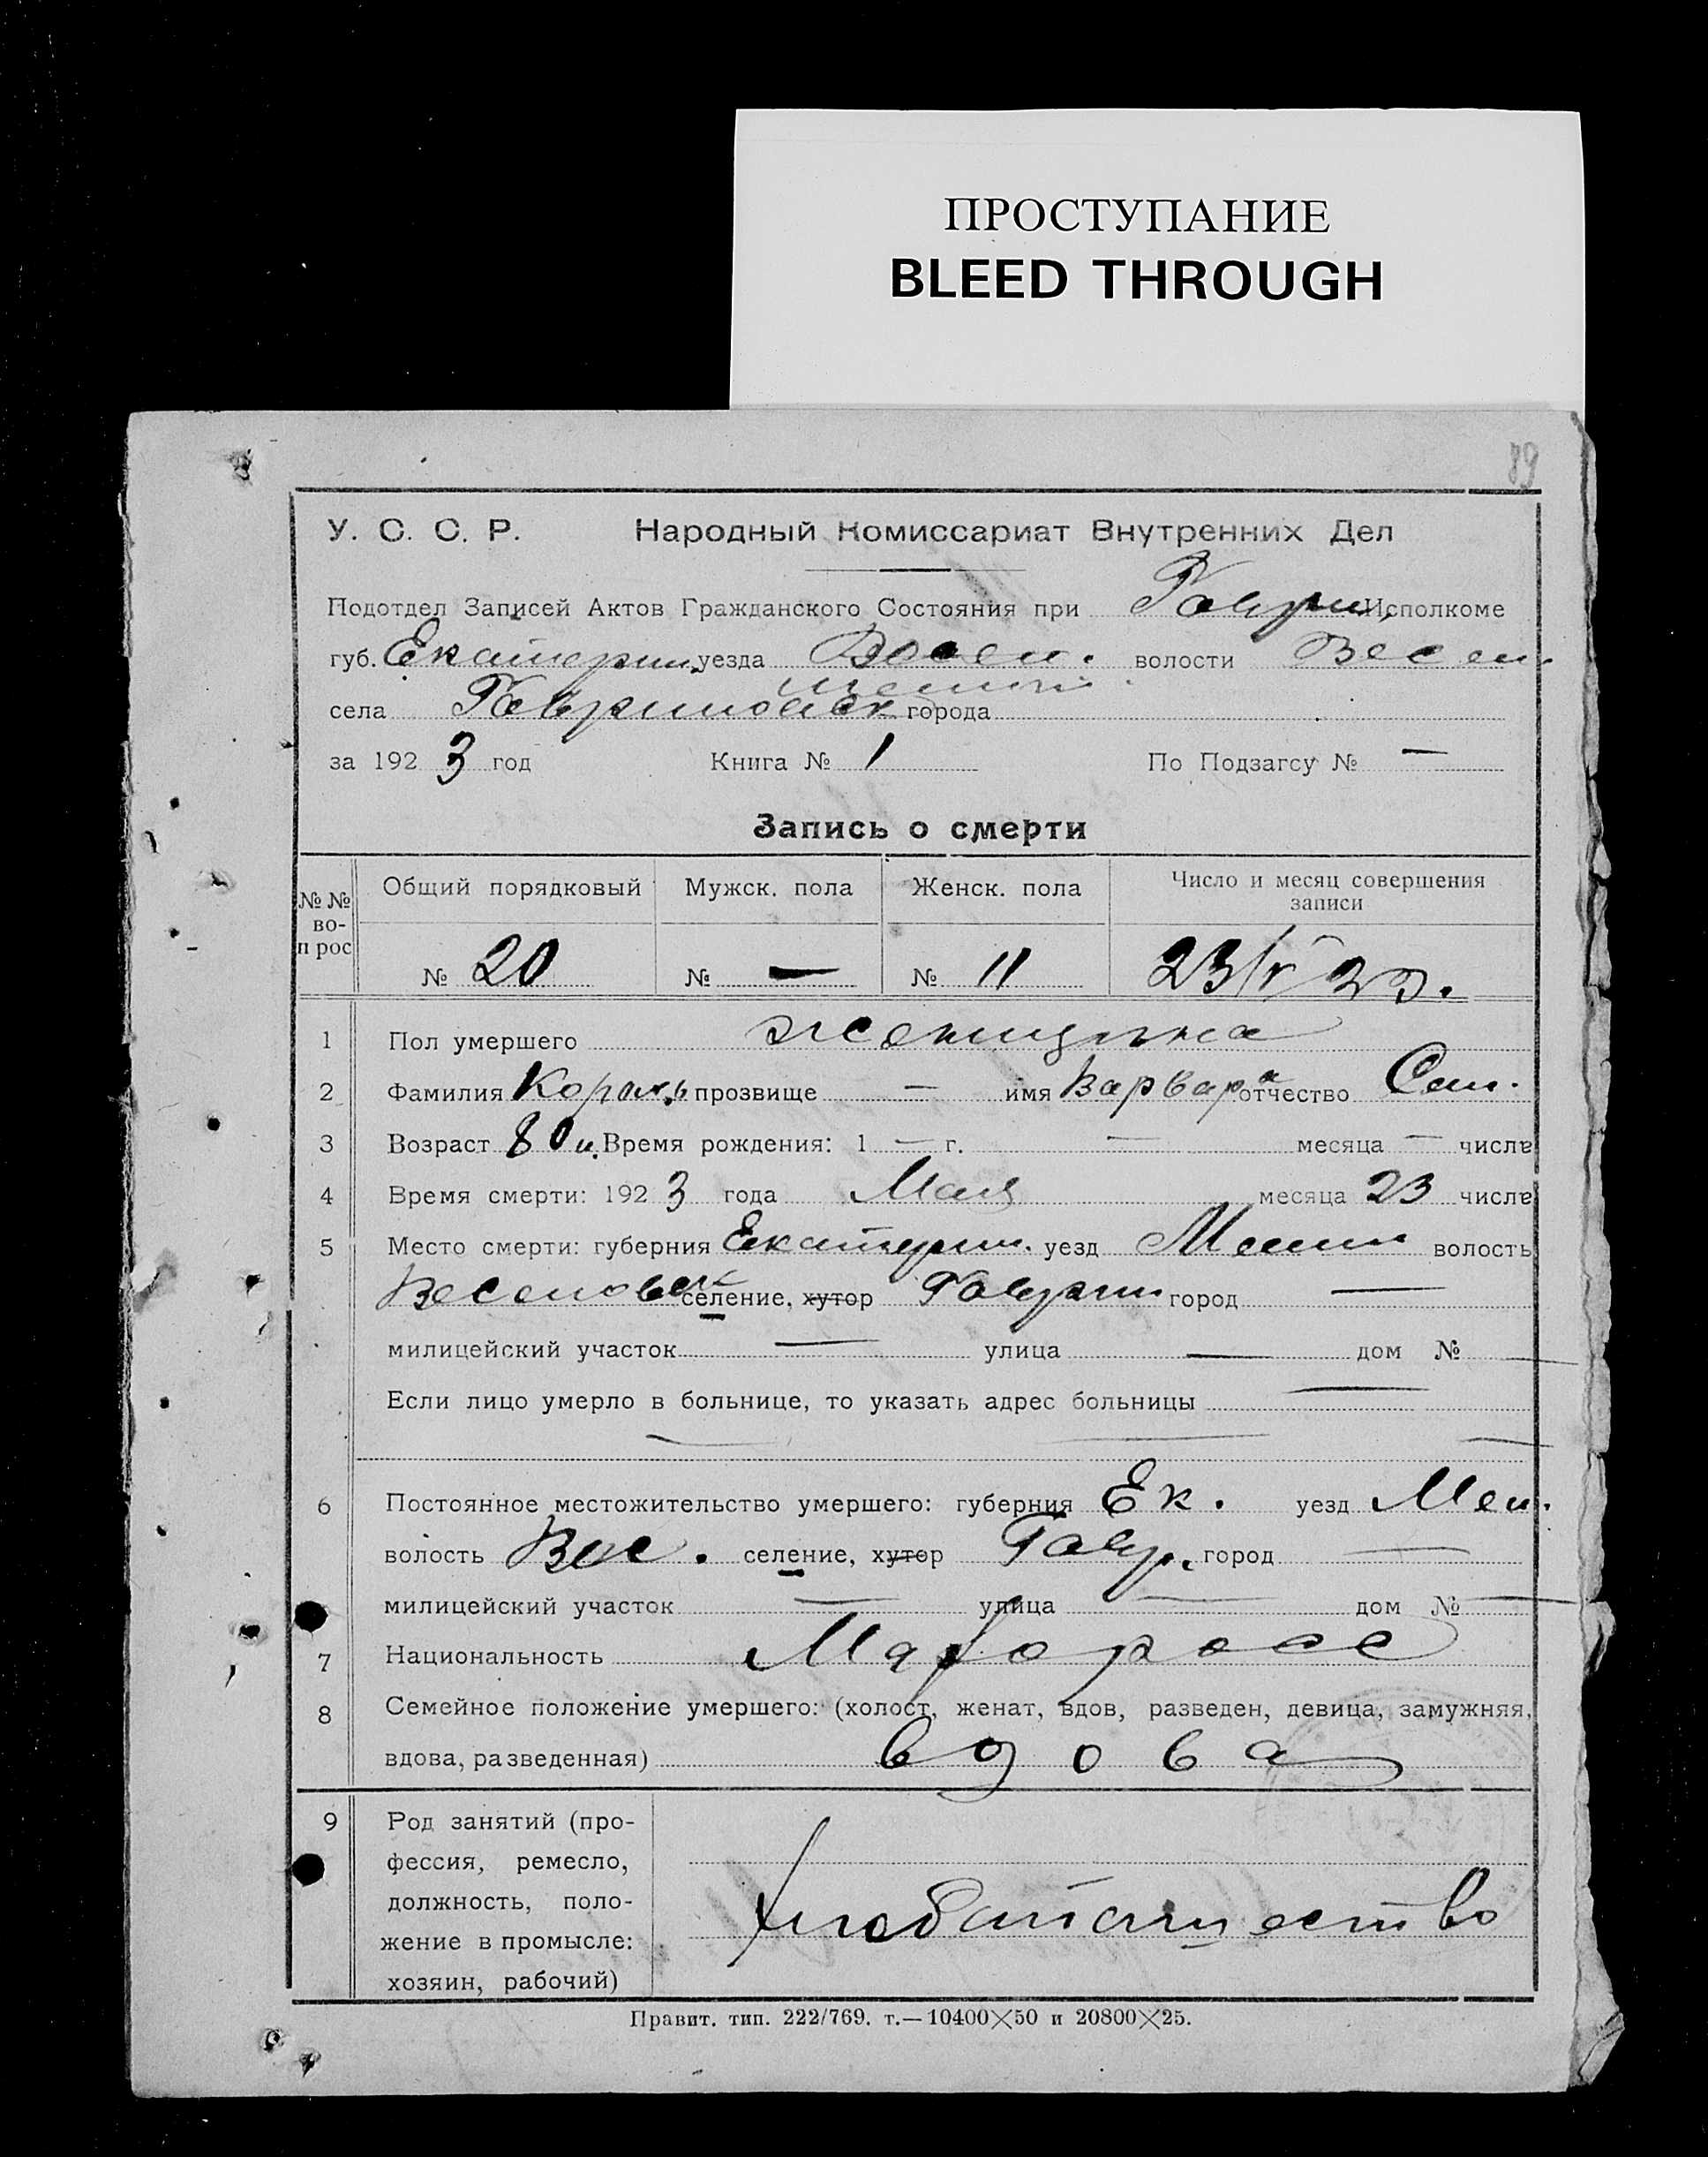 ПРОСТУПАНИЕ
BLEED THROUGH
89
У. С. С. Р. Народный Комиссариат Внутренних Дел
Подотдел Записей Актов Гражданского Состояния при Гаври. Исполкоме
губ. Екатерин. уезда волости Весел.
села города
за 1923 год Книга № 1 По Подзагсу № —
Запись о смерти
№№ во-прос Общий порядковый Мужск. пола Женск. пола Число и месяц совершения записи
№ 20 № — № 11 23/V 23.
1 Пол умершего женщина
2 Фамилия Король прозвище — имя Варвара отчество Сам.
3 Возраст 80 л. Время рождения: 1 — г. — месяца — числа
4 Время смерти: 1923 года Мая месяца 23 числа
5 Место смерти: губерния Екатерин. уезд волость
селение, хутор Гаврил город —
милицейский участок — улица — дом № —
Если лицо умерло в больнице, то указать адрес больницы —
— — —
6 Постоянное местожительство умершего: губерния Ек. уезд Мел.
волость Вес. селение, хутор Гавр. город —
милицейский участок — улица — дом № —
7 Национальность Малоросс
8 Семейное положение умершего: (холост, женат, вдов, разведен, девица, замужняя,
вдова, разведенная) вдова
9 Род занятий (про-
фессия, ремесло,
должность, поло-
жение в промысле:
хозяин, рабочий)
Хлебопашество
Правит. тип. 222/769. т.—10400×50 и 20800×25.